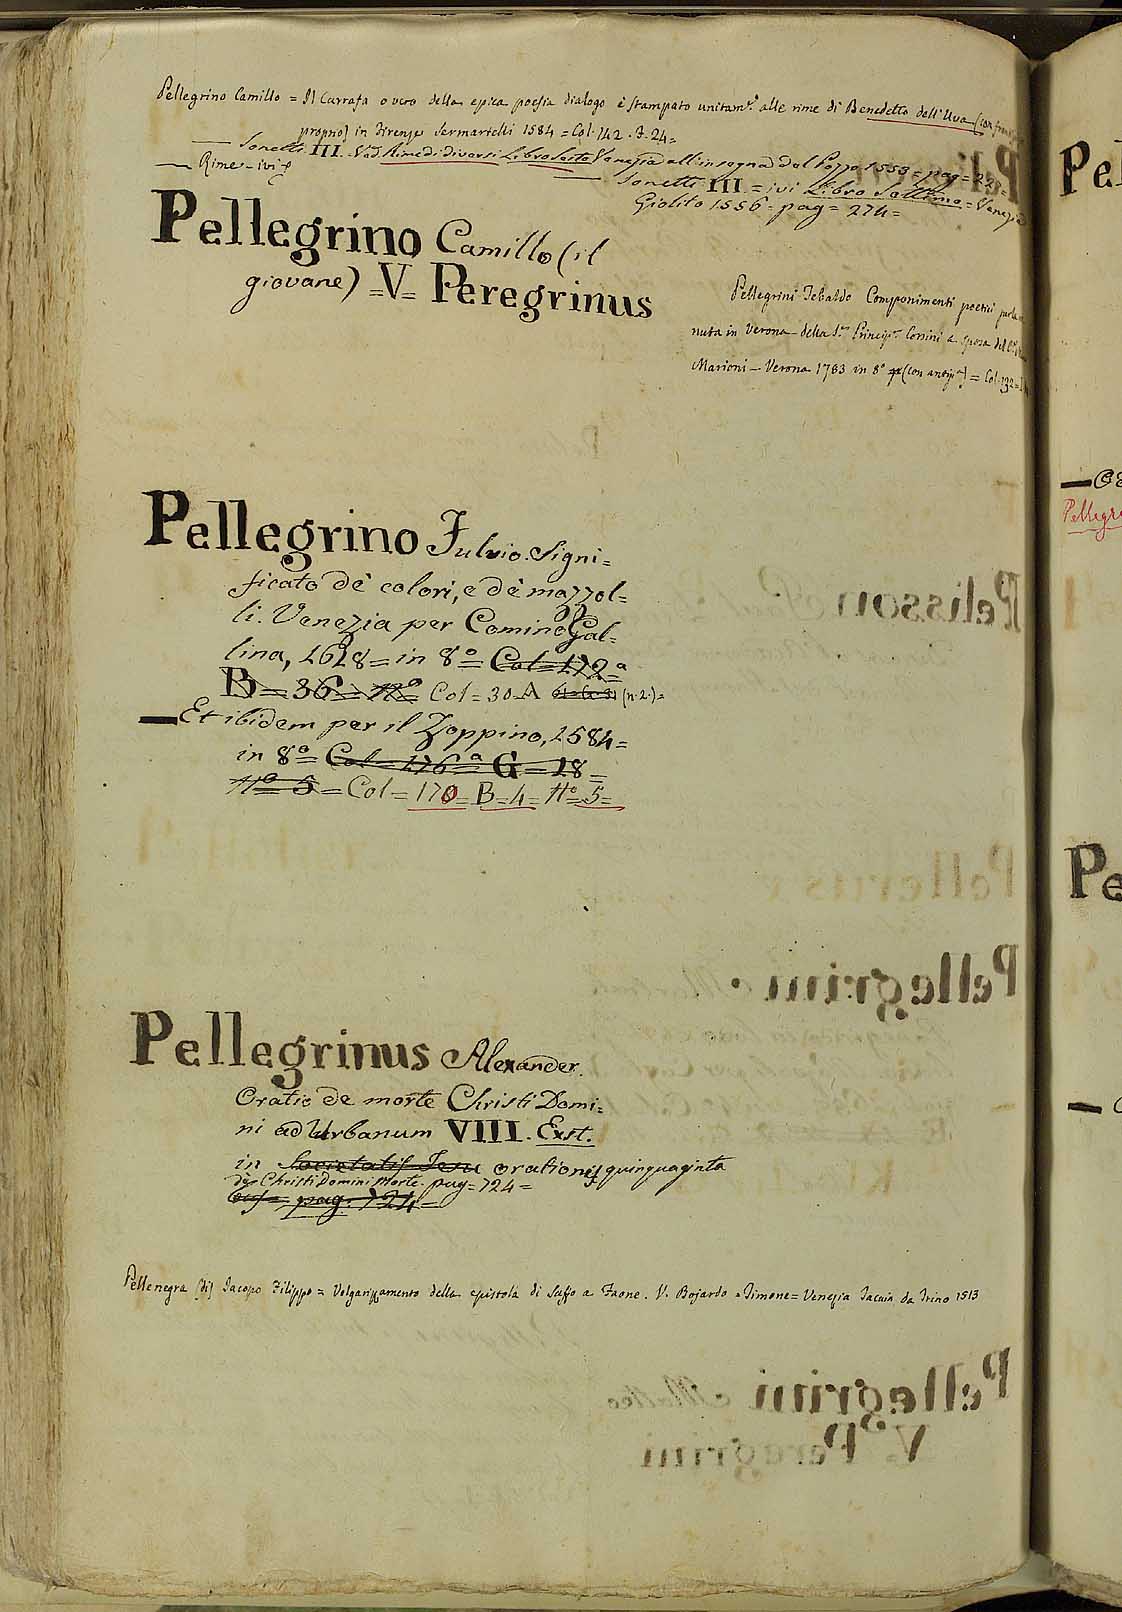 Pellegrino Camillo = Il Carrafa o vero della epica poesia dialogo è stampato unitam.e alle rime di Benedetto dell'Uva (con
proprio) in Firenze Sermartelli 1584 = Col. 142. I. 24=
— Sonetti III. Vad. Rime di diversi Libro Sesto Venezia all'insegna del Pozzo 1553 = pag = 22
— Rime = ivi
— Sonetti III. = ivi Libro Settimo = Venezia
Giolito 1556 = pag = 274=
Pellegrino Camillo (il
giovane) =V= Peregrinus
Pellegrini Tebaldo Componimenti poetici per la
nuta in Verona della S.ra Princip.a Corsini a sposa del
Marioni — Verona 1783 in 8º (con antip.a) = Col. 132 =
Pellegrino Fulvio. Signi=
ficato dè colori, e dè mazzol=
li. Venezia per Comino Gal=
lina, 1618 = in 8º = Col = 172ª
B = 36 = Nº Col = 30 A (n. 2.)=
— Et ibidem per il Zoppino, 1584=
in 8º = Col = 176ª = G = 18 =
Nº 5 = Col = 170 = B = 4 = Nº = 5 =
Pellegrinus Alexander.
Oratio de morte Christi Domi=
ni ad Urbanum VIII. Exst.
in Societatis Jesu orationes quinquaginta
de Christi Domini Morte. pag = 724 =
pag. 724 =
Pellenegra (di) Jacopo Filippo = Volgarizzamento della epistola di Saffo a Faone. V. Bojardo = Timone = Venezia Tacuin da Trino 1513
Pel
Pellegr
Pe